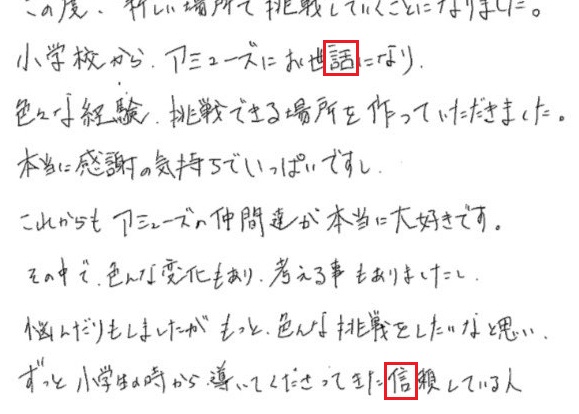 この度、新しい場所で挑戦していくことになりました。
小学校から、アミューズにお世話になり、
色々な経験、挑戦できる場所を作っていただきました。
本当に感謝の気持ちでいっぱいですし、
これからもアミューズの仲間達が本当に大好きです。
その中で、色んな変化もあり、考える事もありましたし、
悩んだりもしましたがもっと、色んな挑戦をしたいなと思い、
ずっと小学生の時から導いてくださってきた信頼している人